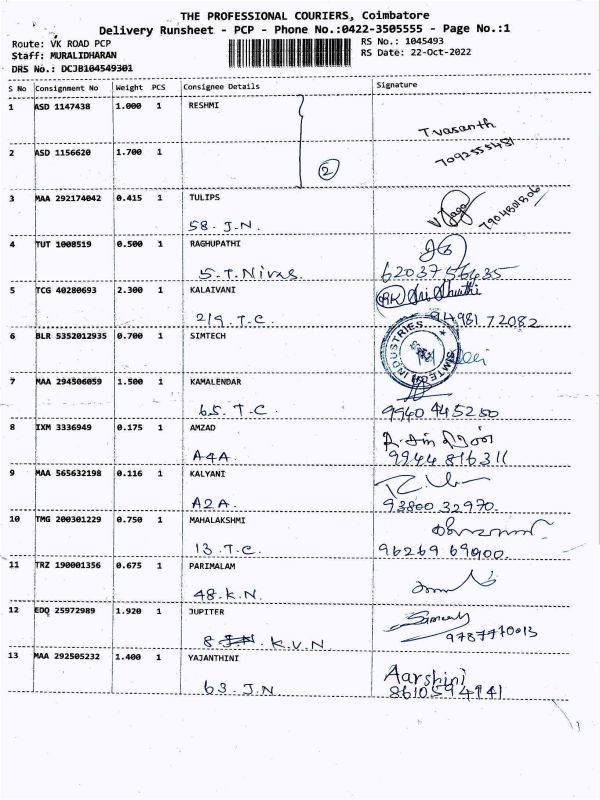 THE PROFESSIONAL COURIERS, Coimbatore
Delivery Runsheet - PCP - Phone No.:0422-3505555 - Page No.:1
Route: VK ROAD PCP RS No.: 1045493
Staff: MURALIDHARAN RS Date: 22-Oct-2022
DRS No.: DCJB104549301
S No Consignment No Weight PCS Consignee Details Signature
1 ASD 1147438 1.000 1 RESHMI
T vasanth
2 ASD 1156620 1.700 1
2
3 MAA 292174042 0.415 1 TULIPS
58. J.N.
4 TUT 1008519 0.500 1 RAGHUPATHI
5. T. Nivas. 6203756435
5 TCG 40280693 2.300 1 KALAIVANI
219. T.C. 9498172082
6 BLR 5352012935 0.700 1 SIMTECH
SIMTECH INDUSTRIES
7 MAA 294506059 1.500 1 KAMALENDAR
65. T.C. 9940445250
8 IXM 3336949 0.175 1 AMZAD
A4A 9944816311
9 MAA 565632198 0.116 1 KALYANI
A2A. 93800 32970.
10 TMG 200301229 0.750 1 MAHALAKSHMI
13. T.C. 96269 69900.
11 TRZ 190001356 0.675 1 PARIMALAM
48. K.N.
12 EDQ 25972989 1.920 1 JUPITER
8 K.V.N. 9787770013
13 MAA 292505232 1.400 1 YAJANTHINI
Aarshini
63. J.N 8610594941